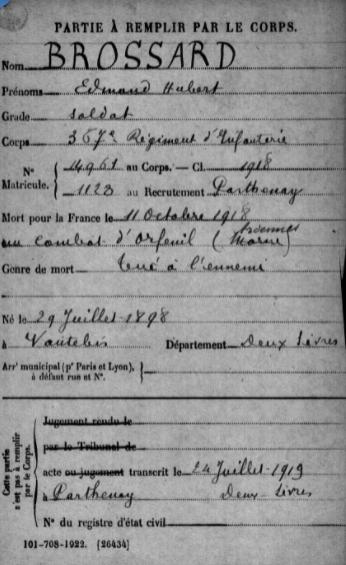 PARTIE À REMPLIR PAR LE CORPS.
Nom BROSSARD
Prénoms Edmond Hubert
Grade soldat
Corps 367e Régiment d'Infanterie
N° Matricule. { 14961 au Corps. — Cl. 1918
1123 au Recrutement Parthenay
Mort pour la France le 11 Octobre 1918
au combat d'Orfeuil (Marne) Ardennes
Genre de mort tué à l'ennemi
Né le 29 Juillet 1898
à Vautebis Département Deux Sèvres
Arrt municipal (pr Paris et Lyon), à défaut rue et N°.
Cette partie n'est pas à remplir par le Corps.
Jugement rendu le
par le Tribunal de
acte ou jugement transcrit le 24 Juillet 1919
à Parthenay Deux-Sèvres
N° du registre d'état civil
101-708-1922. [26434]